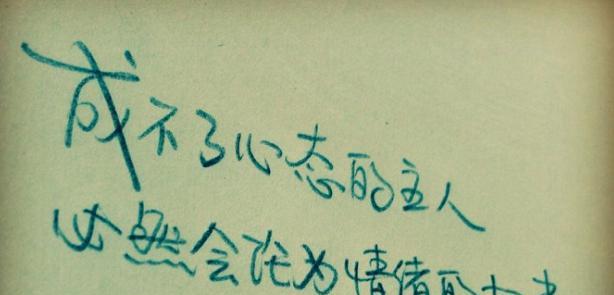 成不了心态的主人
必然会沦为情绪的